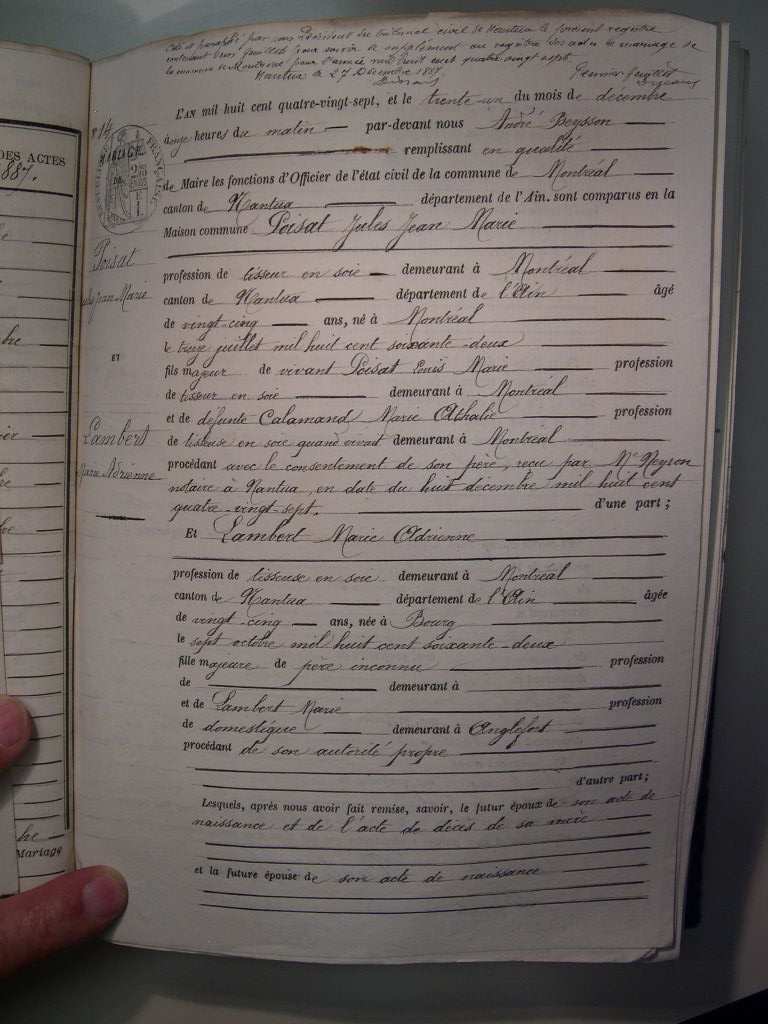 Coté et paraphé par nous Président du tribunal civil de Nantua le présent registre
contenant deux feuillets pour servir de supplément au registre des actes de mariage de
la commune de Montréal pour l'année mil huit cent quatre vingt sept.
Nantua le 27 Décembre 1887.
Premier feuillet
DES ACTES
1887.
n° 14
MARIAGE
DE
Poisat
Jules Jean Marie
ET
Lambert
Marie Adrienne
L'AN mil huit cent quatre-vingt-sept, et le trente-un du mois de décembre
à onze heures du matin par-devant nous André Beysson
remplissant en qualité
de Maire les fonctions d'Officier de l'état civil de la commune de Montréal
canton de Nantua département de l'Ain, sont comparus en la
Maison commune Poisat Jules Jean Marie
profession de tisseur en soie demeurant à Montréal
canton de Nantua département de l'Ain âgé
de vingt-cinq ans, né à Montréal
le treize juillet mil huit cent soixante-deux
fils majeur de vivant Poisat Louis Marie profession
de tisseur en soie demeurant à Montréal
et de défunte Calamand Marie Athalie profession
de tisseuse en soie quand vivait demeurant à Montréal
procédant avec le consentement de son père, reçu par Me Neyron
notaire à Nantua, en date du huit décembre mil huit cent
quatre-vingt-sept. d'une part ;
Et Lambert Marie Adrienne
profession de tisseuse en soie demeurant à Montréal
canton de Nantua département de l'Ain âgée
de vingt-cinq ans, née à Bourg
le sept octobre mil huit cent soixante-deux
fille majeure de père inconnu profession
de demeurant à
et de Lambert Marie profession
de domestique demeurant à Anglefort
procédant de son autorité propre
d'autre part ;
Lesquels, après nous avoir fait remise, savoir, le futur époux de son acte de
naissance et de l'acte de décès de sa mère
et la future épouse de son acte de naissance
Mariage